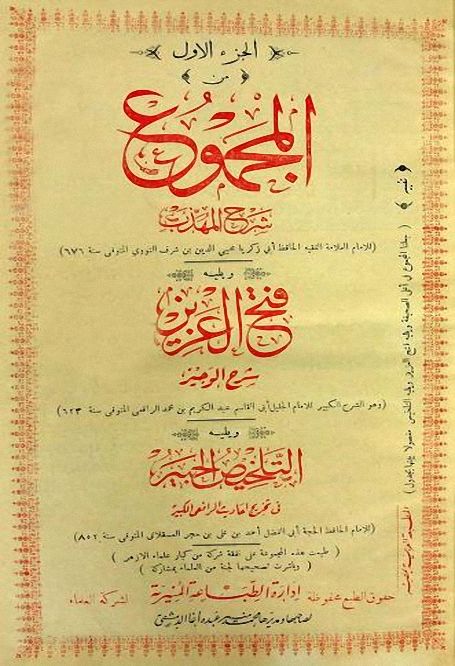 الجزء الاول
من
المجموع
شرح المهذب
(للامام العلامة الفقيه الحافظ أبي زكريا محيي الدين بن شرف النووي المتوفى سنة ٦٧٦)
ويليه
فتح العزيز
شرح الوجيز
(وهو الشرح الكبير للامام الجليل أبي القاسم عبد الكريم بن محمد الرافعي المتوفى سنة ٦٢٣)
ويليه
التلخيص الحبير
في تخريج أحاديث الرافعي الكبير
(للامام الحافظ الحجة أبي الفضل أحمد بن علي بن حجر العسقلاني المتوفى سنة ٨٥٢)
( طبعت هذه المجموعة على نفقة شركة من كبار علماء الازهر )
( وباشرت تصحيحها لجنة من العلماء بمشاركة )
حقوق الطبع محفوظة إدارة الطباعة المنيرية لشركة العلماء
لصاحبها ومديرها محمد منير عبده أغا الدمشقي
﴿ تنبيه ﴾ ( جعلنا المجموع في أعلى الصحيفة ويليه فتح العزيز ويليه التلخيص مفصولا بينها بجدول )